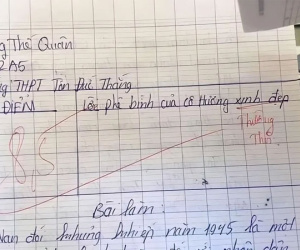 g Thế Quân
2A5
g THPT Tôn Đức Thắng
ĐIỂM
Lời phê bình của cô Hương xinh đẹp
8,5
Thương
Bài làm:
Nạn đói những năm 1945 là một